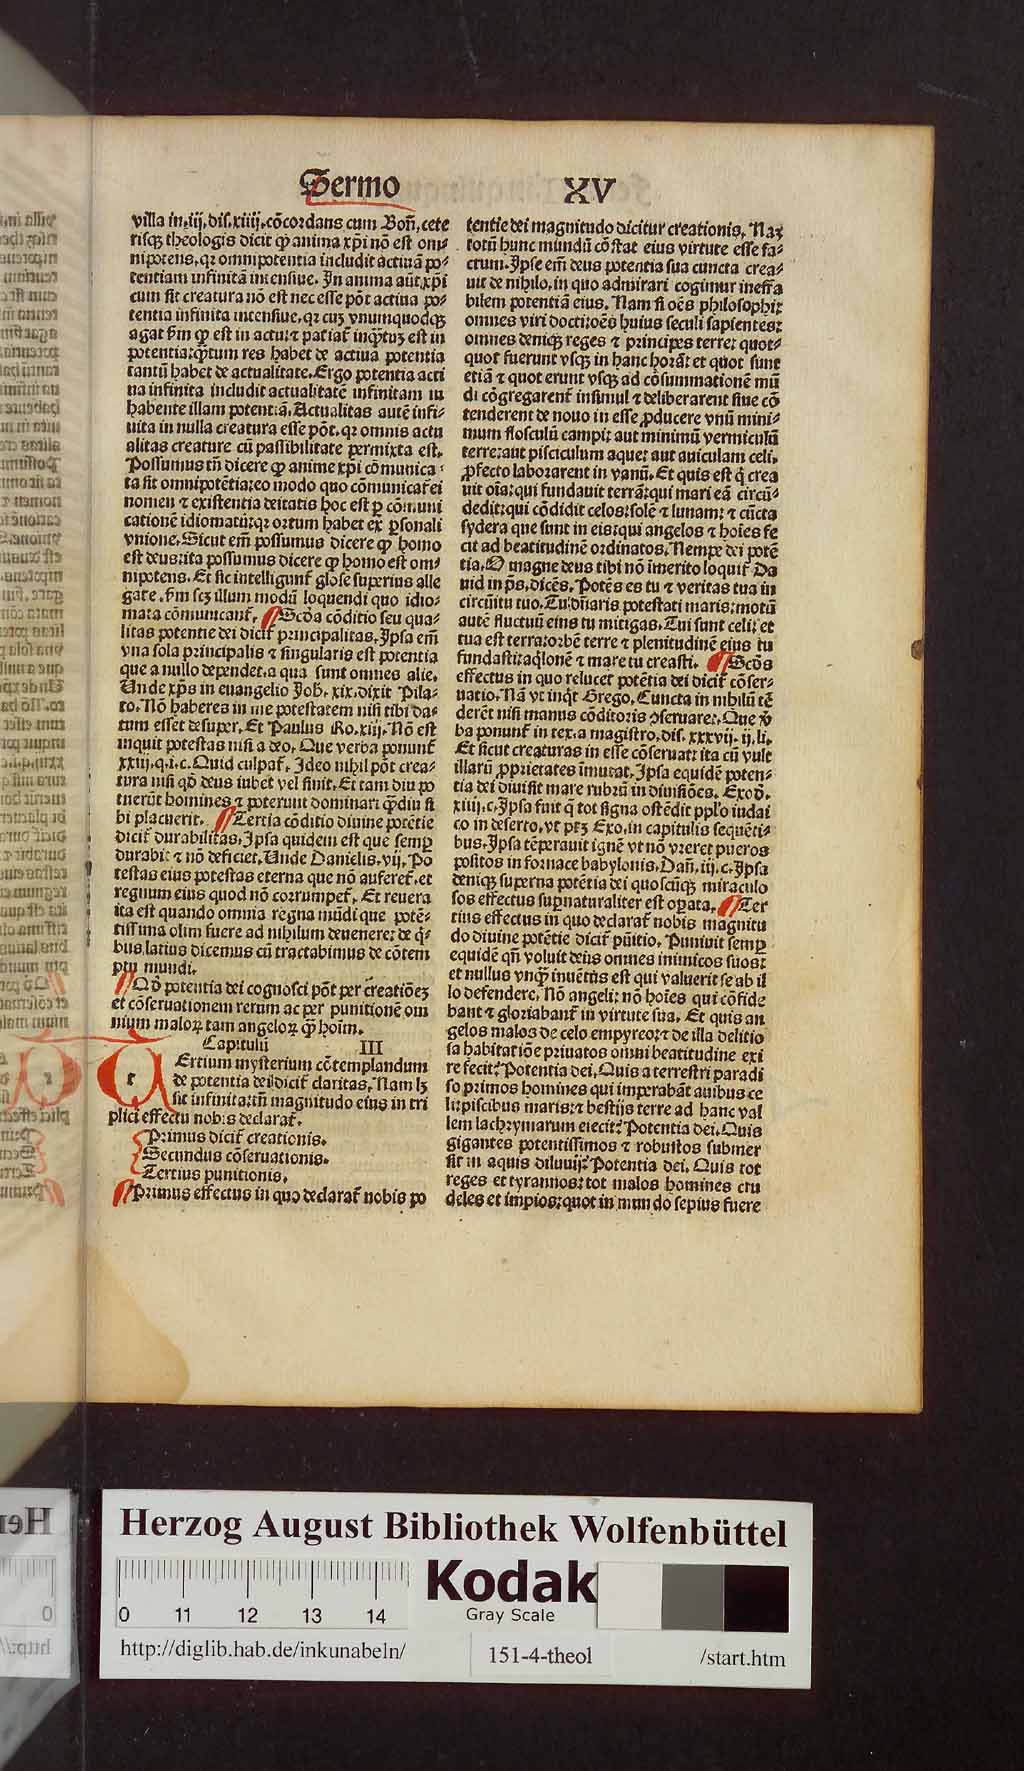 Sermo XV
villa in.iij.dis.xiiij.cōcordans cum Boñ.cete
risqꝫ theologis dicit ꝙ anima xp̄i nō est om-
nipotens, qꝛ omnipotentia includit actiuā po-
tentiam infinitā intensiue. In anima aūt xp̄i
cum sit creatura nō est nec esse pōt actiua po-
tentia infinita intensiue, qꝛ cuꝫ vnumquodqꝫ
agat ẜm ꝙ est in actu: ⁊ patiat᷑ inqͣ̄tuꝫ est in
potentia: qͣ̄tum res habet de actiua potentia
tantū habet de actualitate. Ergo potentia acti
ua infinita includit actualitatē infinitam in
habente illam potentiā. Actualitas autē infi-
nita in nulla creatura esse pōt. qꝛ omnis actu
alitas creature cū passibilitate permixta est.
Possumus tñ dicere ꝙ anime xp̄i cōmunica-
ta sit omnipotētia: eo modo quo cōmunicat᷑ ei
nomen ⁊ existentia deitatis hoc est ꝑ cōmuni
cationē idiomatū: qꝛ ortum habet ex ꝑsonali
vnione. Sicut em̄ possumus dicere ꝙ homo
est deus: ita possumus dicere ꝙ homo est om-
nipotens. Et sic intelligunt᷑ glose superius alle
gate. ẜm scꝫ illum modū loquendi quo idio-
mata cōmunicant᷑. Scd̄a cōditio seu qua-
litas potentie dei dicit᷑ principalitas. Ipsa em̄
vna sola principalis ⁊ singularis est potentia
que a nullo dependet. a qua sunt omnes alie.
Unde xp̄s in euangelio Joh. xix. dixit Pila-
to. Nō haberes in me potestatem nisi tibi da-
tum esset desuper. Et Paulus Ro. xiij. Nō est
inquit potestas nisi a deo. Que verba ponunt᷑
xxiij.q.i.c. Quid culpat᷑. Ideo nihil pōt crea-
tura nisi qd̄ deus iubet vel sinit. Et tam diu po
tuerūt homines ⁊ poterunt dominari qͣ̄diu si
bi placuerit. Tertia cōditio diuine potētie
dicit᷑ durabilitas. Ipsa quidem est que semꝑ
durabit ⁊ nō deficiet. Unde Danielis. vij. Po
testas eius potestas eterna que nō auferet᷑. et
regnum eius quod nō corrumpet᷑. Et reuera
ita est quando omnia regna mūdi que potē-
tissima olim fuere ad nihilum deuenere: de qͥ-
bus latius dicemus cū tractabimus de cōtem
ptu mundi.
Qd̄ potentia dei cognosci pōt per creatiōeꝫ
et cōseruationem rerum ac per punitionē om
nium maloꝝ tam angeloꝝ qͣ̄ hoīm.
Capitulū III
Tertium mysterium cōtemplandum
de potentia dei dicit᷑ claritas. Nam lꝫ
sit infinita: tñ magnitudo eius in tri
plici effectu nobis declarat᷑.
Primus dicit᷑ creationis.
Secundus cōseruationis.
Tertius punitionis.
Primus effectus in quo declarat᷑ nobis po
tentie dei magnitudo dicitur creationis. Naꝫ
totū hunc mundū cōstat eius virtute esse fa-
ctum. Ipse em̄ deus potentia sua cuncta crea-
uit de nihilo, in quo admirari cogimur ineffa
bilem potentiā eius. Nam si oēs philosophi:
omnes viri docti: oēs huius seculi sapientes:
omnes deniqꝫ reges ⁊ principes terre: quot-
quot fuerunt vsqꝫ in hanc horā: et quot sunt
etiā ⁊ quot erunt vsqꝫ ad cōsummationē mū
di cōgregarent᷑ insimul ⁊ deliberarent siue cō
tenderent de nouo in esse ꝓducere vnū mini-
mum flosculū campi: aut minimū vermiculū
terre: aut pisciculum aque: aut auiculam celi.
ꝓfecto laborarent in vanū. Et quis est qͥ crea
uit oīa: qui fundauit terrā: qui mari eā circū-
dedit: qui cōdidit celos: solē ⁊ lunam: ⁊ cūcta
sydera que sunt in eis: qui angelos ⁊ hoīes fe
cit ad beatitudinē ordinatos. Nempe dei potē
tia. O magne deus tibi nō īmerito loquit᷑ Da
uid in ps̄. dicēs. Potēs es tu ⁊ veritas tua in
circūitu tuo. Tu dn̄aris potestati maris: motū
autē fluctuū eius tu mitigas. Tui sunt celi: et
tua est terra: orbē terre ⁊ plenitudinē eius tu
fundasti: aqͥlonē ⁊ mare tu creasti. Scd̄s
effectus in quo relucet potētia dei dicit᷑ cōser-
uatio. Nā vt inqͥt Grego. Cuncta in nihilū tē
derēt nisi manus cōditoris ꝯseruaret. Que ꝟ
ba ponunt᷑ in tex. a magistro. dis. xxxvij. ij. li.
Et sicut creaturas in esse cōseruat: ita cū vult
illarū ꝓprietates īmutat. Ipsa equidē poten-
tia dei diuisit mare rubrū in diuisiōes. Exod̄.
xiiij.c. Ipsa fuit qͥ tot signa ostēdit pplō iudai
co in deserto. vt ptꝫ Exo. in capitulis sequēti-
bus. Ipsa tēperauit ignē vt nō vreret pueros
positos in fornace babylonis. Dañ. iij. c. Ipsa
deniqꝫ superna potētia dei quoscūqꝫ miraculo
sos effectus suꝑnaturaliter est oꝑata. Ter
tius effectus in quo declarat᷑ nobis magnitu
do diuine potētie dicit᷑ pūitio. Puniuit semꝑ
equidē qn̄ voluit deus omnes inimicos suos:
et nullus vnqͣ̄ inuētus est qui valuerit se ab il
lo defendere. Nō angeli: nō hoīes qui cōfide
bant ⁊ gloriabant᷑ in virtute sua. Et quis an
gelos malos de celo empyreo: ⁊ de illa delitio
sa habitatiōe priuatos omni beatitudine exi
re fecit? Potentia dei. Quis a terrestri paradi
so primos homines qui imperabāt auibus ce
li: piscibus maris: ⁊ bestijs terre ad hanc val
lem lachrymarum eiecit? Potentia dei. Quis
gigantes potentissimos ⁊ robustos submer
sit in aquis diluuij? Potentia dei. Quis tot
reges et tyrannos: tot malos homines cru
deles et impios: quot in mundo sepius fuere
Herzog August Bibliothek Wolfenbüttel
0 11 12 13 14
Kodak
Gray Scale
http://diglib.hab.de/inkunabeln/ 151-4-theol /start.htm